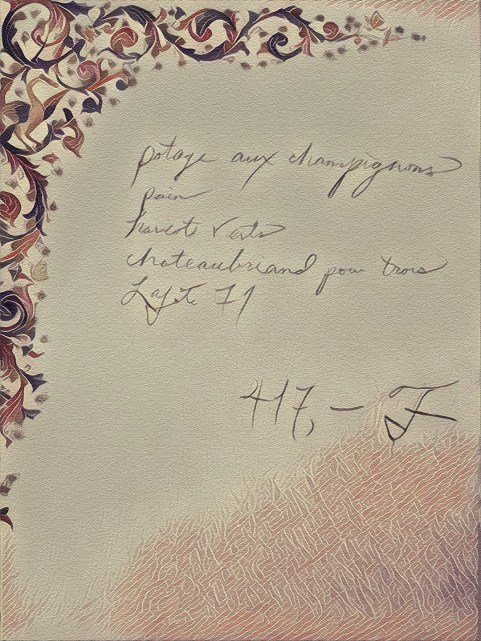 potage aux champignons
pain
haricot verts
chateaubriand pour trois
Lafite 71
417,– F